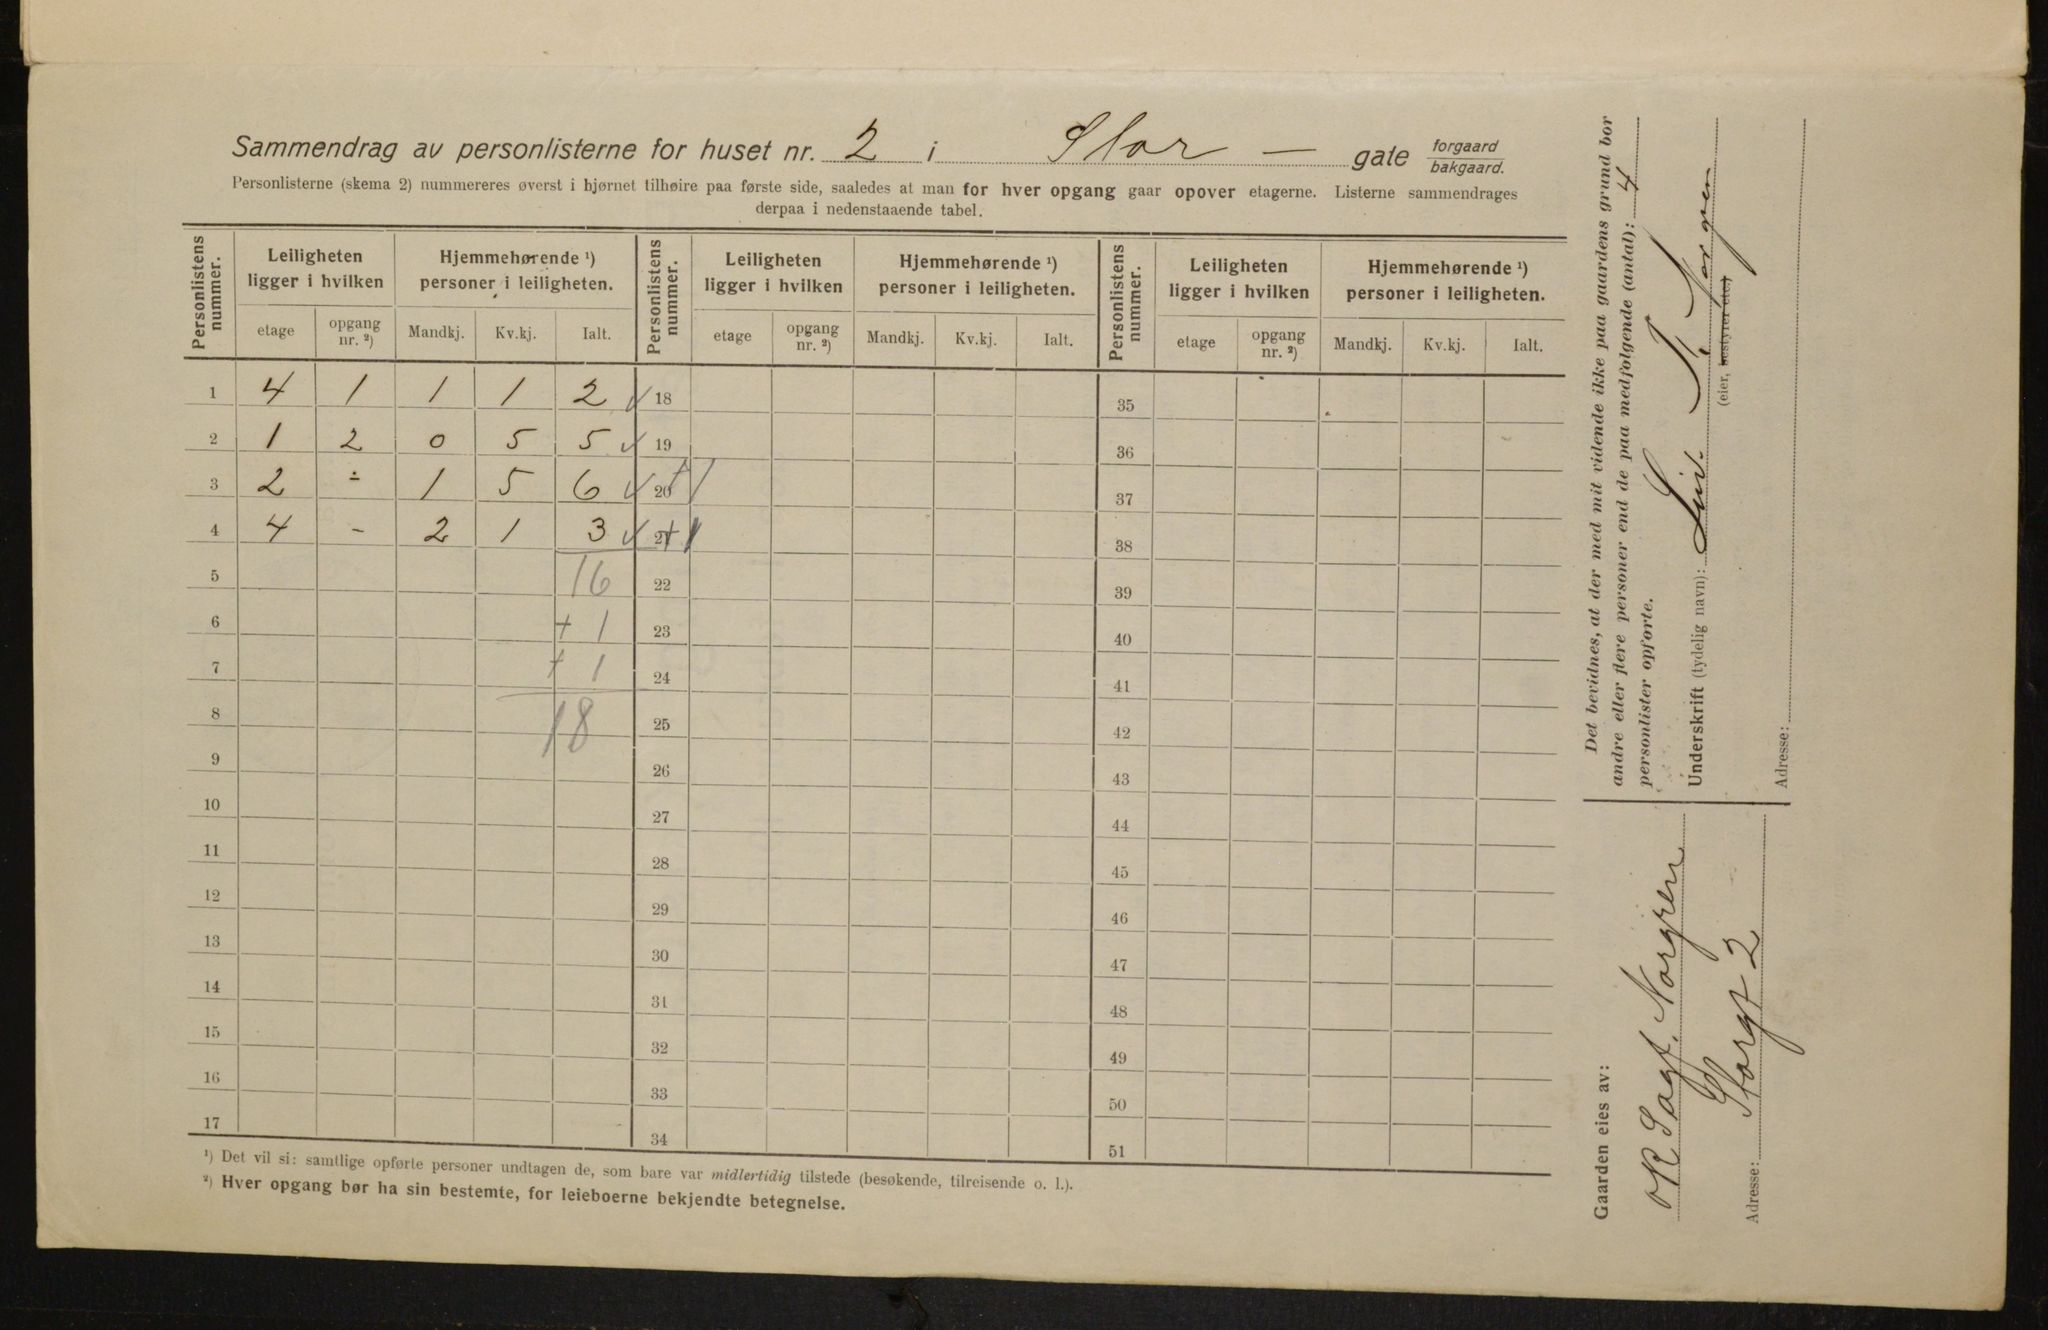 Sammendrag av personlisterne for huset nr. 2 i Stor - gate forgaard/bakgaard.
Personlisterne (skema 2) nummereres øverst i hjørnet tilhøire paa første side, saaledes at man for hver opgang gaar opover etagerne. Listerne sammendrages
derpaa i nedenstaaende tabel.
Personlistens nummer. Leiligheten ligger i hvilken Hjemmehørende ¹) personer i leiligheten. Personlistens nummer. Leiligheten ligger i hvilken Hjemmehørende ¹) personer i leiligheten. Personlistens nummer. Leiligheten ligger i hvilken Hjemmehørende ¹) personer i leiligheten.
etage opgang nr. ²) Mandkj. Kv.kj. Ialt. etage opgang nr. ²) Mandkj. Kv.kj. Ialt. etage opgang nr. ²) Mandkj. Kv.kj. Ialt.
1 4 1 1 1 2 ✓ 18 35
2 1 2 0 5 5 ✓ 19 36
3 2 ÷ 1 5 6 ✓ 20 +1 37
4 4 - 2 1 3 ✓ 21 +1 38
5 16 22 39
6 + 1 23 40
7 + 1 24 41
8 18 25 42
9 26 43
10 27 44
11 28 45
12 29 46
13 30 47
14 31 48
15 32 49
16 33 50
17 34 51
¹) Det vil si: samtlige opførte personer undtagen de, som bare var midlertidig tilstede (besøkende, tilreisende o. l.).
²) Hver opgang bør ha sin bestemte, for leieboerne bekjendte betegnelse.
Det bevidnes, at der med mit vidende ikke paa gaardens grund bor
andre eller flere personer end de paa medfølgende (antal): 4
personlister opførte.
Underskrift (tydelig navn): Norgren
(eier, bestyrer etc.)
Adresse:
Gaarden eies av:
Norgren
Adresse: Storgt 2